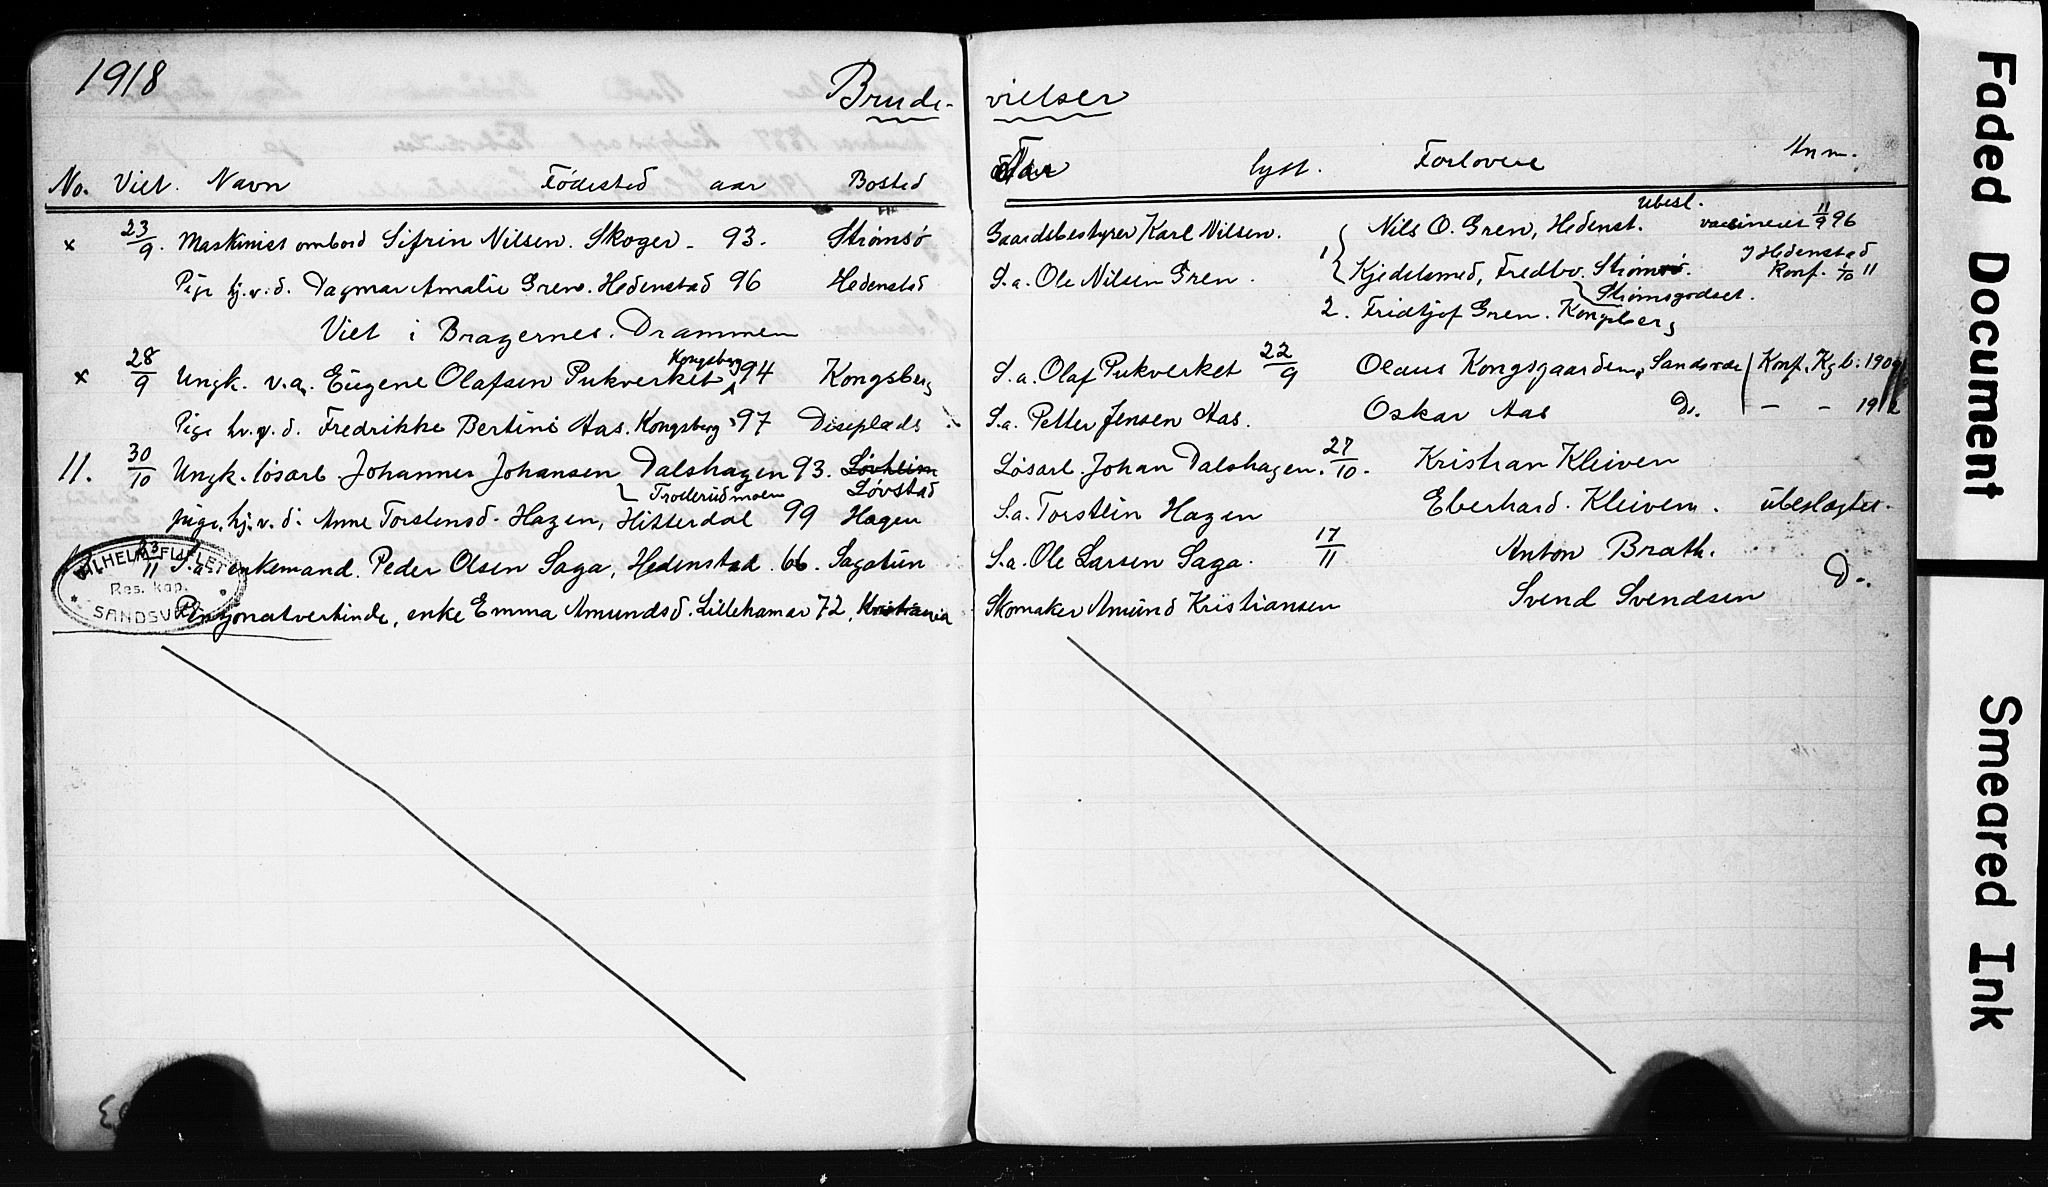 1918
Brude- vielser
No. Viet. Navn Födested aar Bosted Far lyst. Forlovere Anm.
x 23/9. Maskinist ombord Sifrin Nilsen. Skoger - 93. Strömsö Gaardsbestyrer Karl Nilsen. Nils O. Gren, Hedenst. Ubesl. vaccineret 11/9 96
Pige hj. v. d. Dagmar Amalie Gren. Hedenstad 96 Hedenstad S. a. Ole Nilsen Gren. 1 Kjedelsmed, Fredbo. Strömsö. I Hedenstad Konf. 1/10 11
Strömsgodset.
Viet i Bragernes. Drammen 2. Fridtjof Gren. Kongsberg
x 28/9 Ungk. v. a. Eugene Olafsen Pukverket Kongsberg 94 Kongsberg S. a. Olaf Pukverket 22/9 Olaus Kongsgaarden, Sandsvær Konf. Kgb. 1909
Pige hv. v. d. Fredrikke Bertine Aas. Kongsberg 97 Diseplads S. a. Petter Jensen Aas. Oskar Aas Do. - - 1912
11. 30/10 Ungk. lösarb. Johannes Johansen Dalshagen 93. Lövheim Lösarb. Johan Dalshagen. 27/10. Kristian Kleiven
Troderudmoen Lövstad
pige, hj. v. d. Anne Torstensd. Hagen, Hitterdal 99 Hagen S. a. Torstein Hagen Eberhard Kleiven. ubeslægtet.
23/11 S. a. enkemand. Peder Olsen Saga, Hedenstad. 66. Sagatun S. a. Ole Larsen Saga. 17/11 Anton Brath. Do.
Pensjonatvertinde, enke Emma Amundsd. Lillehamar 72, Kristiania Skomaker Amund Kristiansen Svend Svendsen
WILHELM FLUFLET
Res. kap.
SANDSVÆR
Faded Document
Smeared Ink